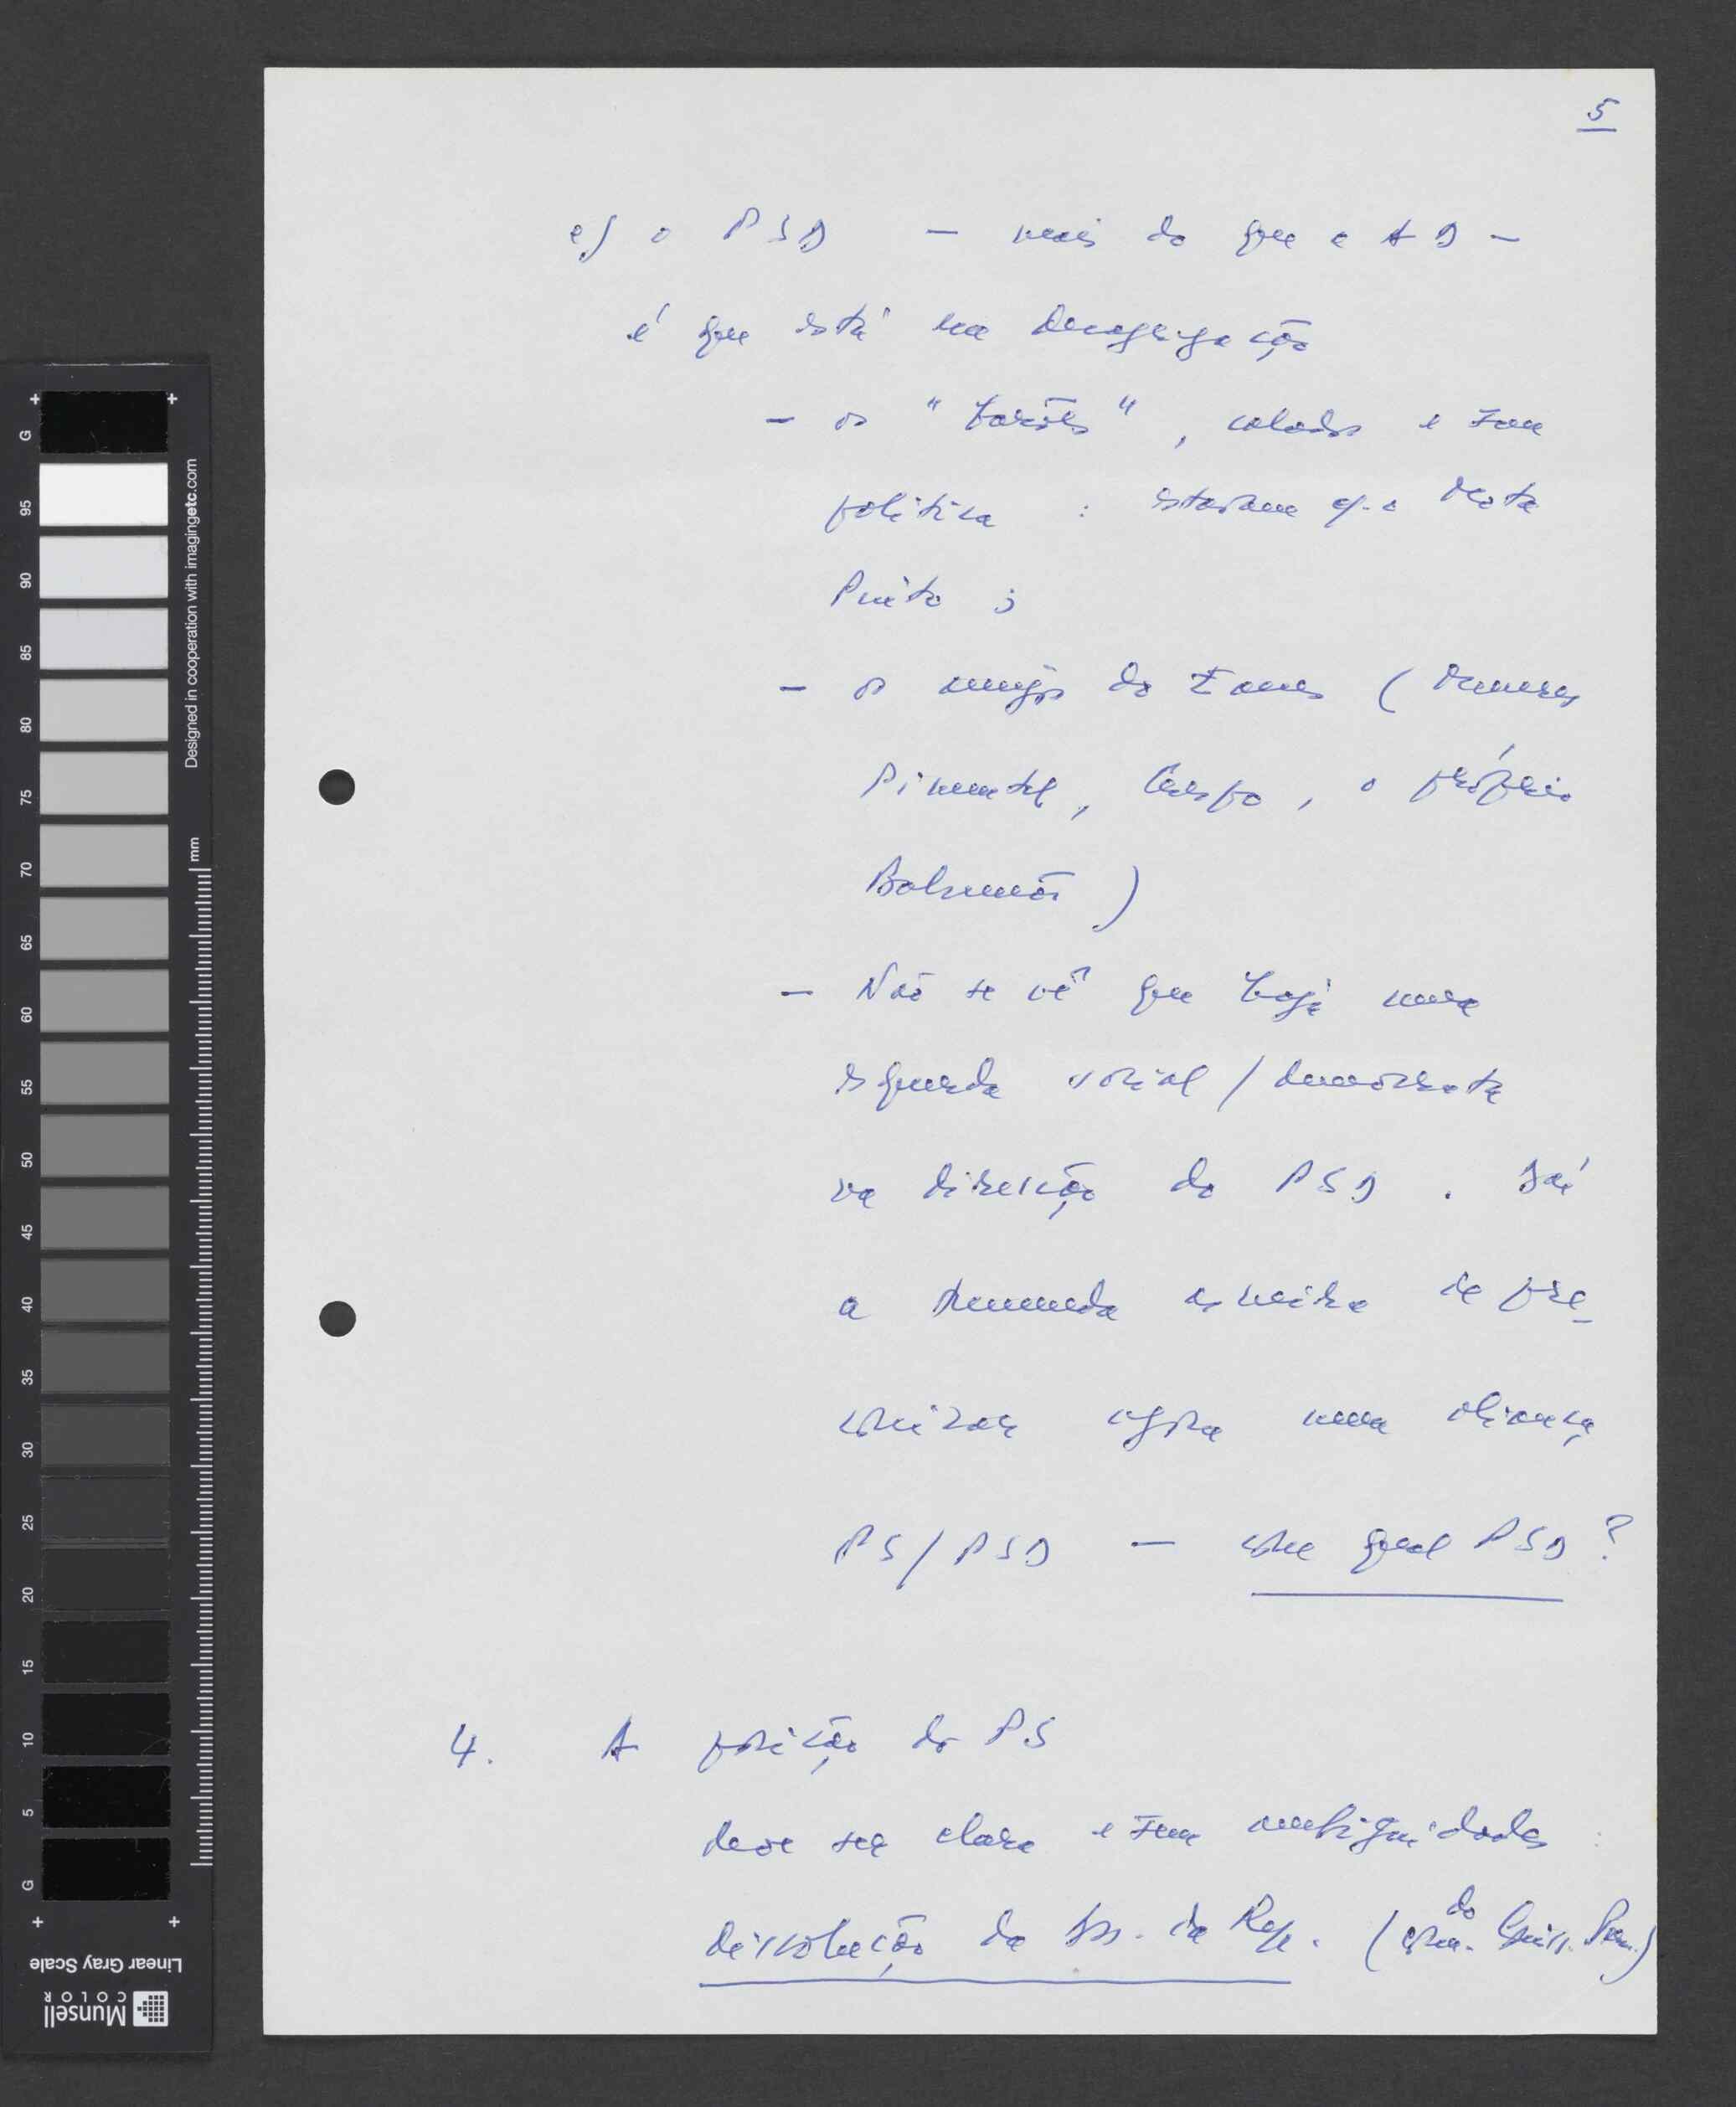 5
e) o PSD — mais do que a AD —
é que está em desagregação
— os "barões", calados e sem
política : estavam c/ o Mota
Pinto ;
— os amigos do Eanes (Meneres
Pimentel, Crespo, o próprio
Balsemão)
— Não se vê que haja uma
esquerda social/democrata
na direcção do PSD. Daí
a tremenda asneira de pre-
conizar agora uma aliança
PS/PSD — com qual PSD?
4. A posição do PS
deve ser clara e sem ambiguidades :
dissolução da Ass. da Rep. (com. do Perm.)
G
95
90
85
80
75
70
65
60
55
50
45
40
35
30
25
20
15
10
5
G
mm
Designed in cooperation with imagingetc.com
Linear Gray Scale
Munsell
COLOR